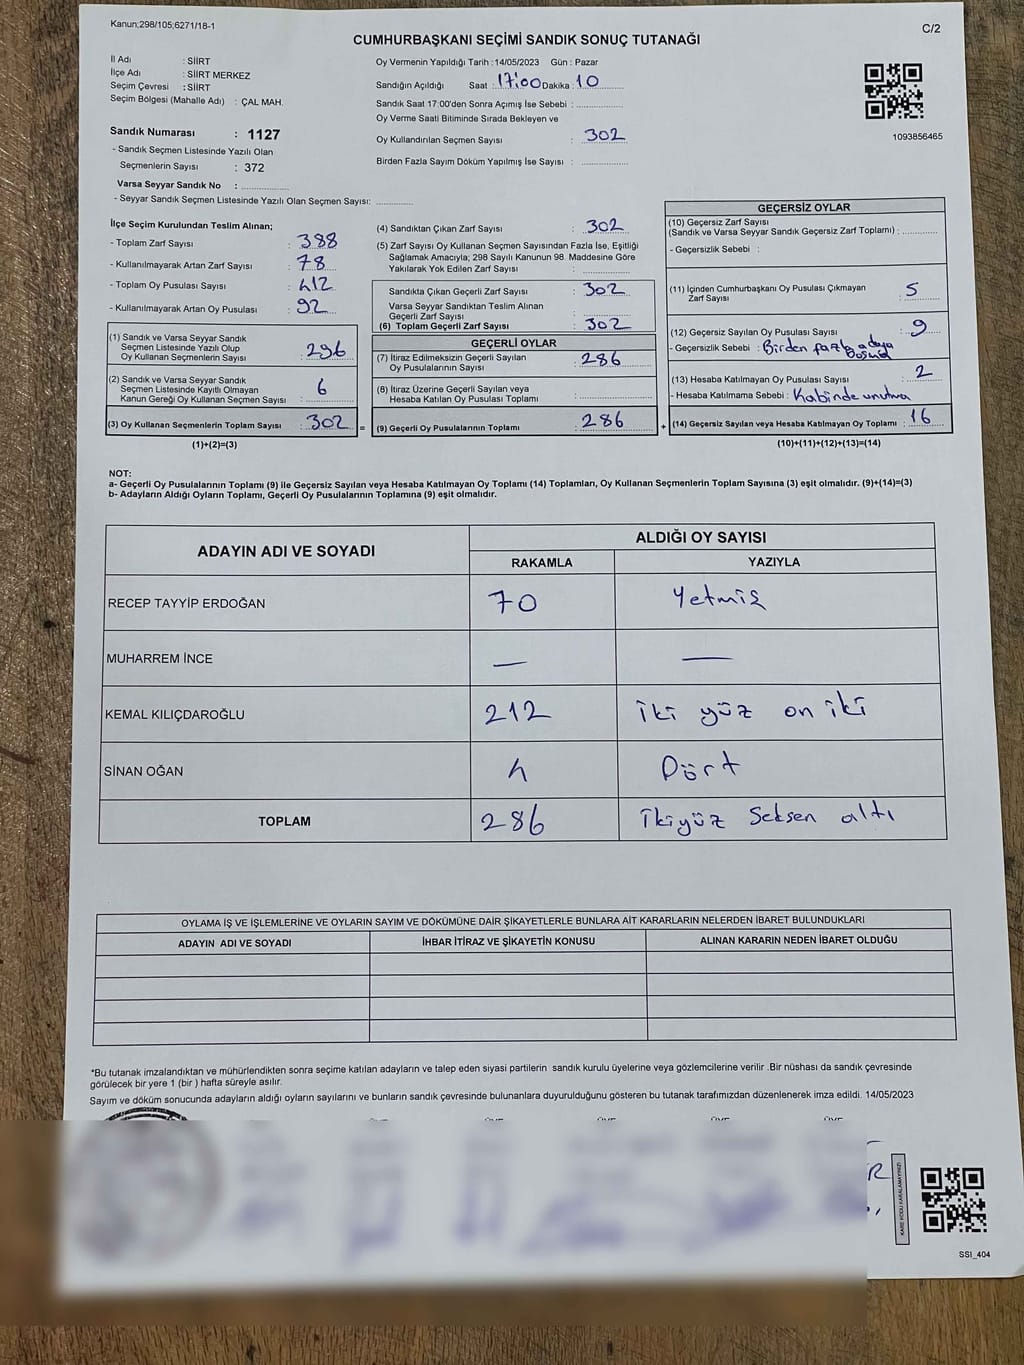 Kanun;298/105;6271/18-1
C/2
CUMHURBAŞKANI SEÇİMİ SANDIK SONUÇ TUTANAĞI
İl Adı : SİİRT
İlçe Adı : SİİRT MERKEZ
Seçim Çevresi : SİİRT
Seçim Bölgesi (Mahalle Adı) : ÇAL MAH.
Sandık Numarası : 1127
- Sandık Seçmen Listesinde Yazılı Olan
Seçmenlerin Sayısı : 372
Varsa Seyyar Sandık No :
- Seyyar Sandık Seçmen Listesinde Yazılı Olan Seçmen Sayısı:
Oy Vermenin Yapıldığı Tarih :14/05/2023 Gün : Pazar
Sandığın Açıldığı Saat : 17:00 Dakika : 10
Sandık Saat 17:00'den Sonra Açımış İse Sebebi :
Oy Verme Saati Bitiminde Sırada Bekleyen ve
Oy Kullandırılan Seçmen Sayısı : 302
Birden Fazla Sayım Döküm Yapılmış İse Sayısı :
1093856465
İlçe Seçim Kurulundan Teslim Alınan;
- Toplam Zarf Sayısı : 388
- Kullanılmayarak Artan Zarf Sayısı : 78
- Toplam Oy Pusulası Sayısı : 412
- Kullanılmayarak Artan Oy Pusulası : 92
(1) Sandık ve Varsa Seyyar Sandık
Seçmen Listesinde Yazılı Olup
Oy Kullanan Seçmenlerin Sayısı : 296
(2) Sandık ve Varsa Seyyar Sandık
Seçmen Listesinde Kayıtlı Olmayan
Kanun Gereği Oy Kullanan Seçmen Sayısı : 6
(3) Oy Kullanan Seçmenlerin Toplam Sayısı : 302
(1)+(2)=(3)
(4) Sandıktan Çıkan Zarf Sayısı : 302
(5) Zarf Sayısı Oy Kullanan Seçmen Sayısından Fazla İse, Eşitliği
Sağlamak Amacıyla; 298 Sayılı Kanunun 98. Maddesine Göre
Yakılarak Yok Edilen Zarf Sayısı :
Sandıkta Çıkan Geçerli Zarf Sayısı : 302
Varsa Seyyar Sandıktan Teslim Alınan
Geçerli Zarf Sayısı :
(6) Toplam Geçerli Zarf Sayısı : 302
GEÇERLİ OYLAR
(7) İtiraz Edilmeksizin Geçerli Sayılan
Oy Pusulalarının Sayısı : 286
(8) İtiraz Üzerine Geçerli Sayılan veya
Hesaba Katılan Oy Pusulası Toplamı :
= (9) Geçerli Oy Pusulalarının Toplamı : 286
GEÇERSİZ OYLAR
(10) Geçersiz Zarf Sayısı
(Sandık ve Varsa Seyyar Sandık Geçersiz Zarf Toplamı) :
- Geçersizlik Sebebi :
(11) İçinden Cumhurbaşkanı Oy Pusulası Çıkmayan
Zarf Sayısı : 5
(12) Geçersiz Sayılan Oy Pusulası Sayısı : 9
- Geçersizlik Sebebi : Birden fazla adaya
(13) Hesaba Katılmayan Oy Pusulası Sayısı : 2
- Hesaba Katılmama Sebebi : Kabinde unutma
+ (14) Geçersiz Sayılan veya Hesaba Katılmayan Oy Toplamı : 16
(10)+(11)+(12)+(13)=(14)
NOT:
a- Geçerli Oy Pusulalarının Toplamı (9) ile Geçersiz Sayılan veya Hesaba Katılmayan Oy Toplamı (14) Toplamları, Oy Kullanan Seçmenlerin Toplam Sayısına (3) eşit olmalıdır. (9)+(14)=(3)
b- Adayların Aldığı Oyların Toplamı, Geçerli Oy Pusulalarının Toplamına (9) eşit olmalıdır.
ADAYIN ADI VE SOYADI ALDIĞI OY SAYISI
RAKAMLA YAZIYLA
RECEP TAYYİP ERDOĞAN 70 Yetmiş
MUHARREM İNCE — —
KEMAL KILIÇDAROĞLU 212 İki yüz on iki
SİNAN OĞAN 4 Dört
TOPLAM 286 İkiyüz Seksen altı
OYLAMA İŞ VE İŞLEMLERİNE VE OYLARIN SAYIM VE DÖKÜMÜNE DAİR ŞİKAYETLERLE BUNLARA AİT KARARLARIN NELERDEN İBARET BULUNDUKLARI
ADAYIN ADI VE SOYADI İHBAR İTİRAZ VE ŞİKAYETİN KONUSU ALINAN KARARIN NEDEN İBARET OLDUĞU
*Bu tutanak imzalandıktan ve mühürlendikten sonra seçime katılan adayların ve talep eden siyasi partilerin sandık kurulu üyelerine veya gözlemcilerine verilir .Bir nüshası da sandık çevresinde
görülecek bir yere 1 (bir ) hafta süreyle asılır.
Sayım ve döküm sonucunda adayların aldığı oyların sayılarını ve bunların sandık çevresinde bulunanlara duyurulduğunu gösteren bu tutanak tarafımızdan düzenlenerek imza edildi. 14/05/2023
KARE KODU KARALAMAYINIZ!
SSI_404